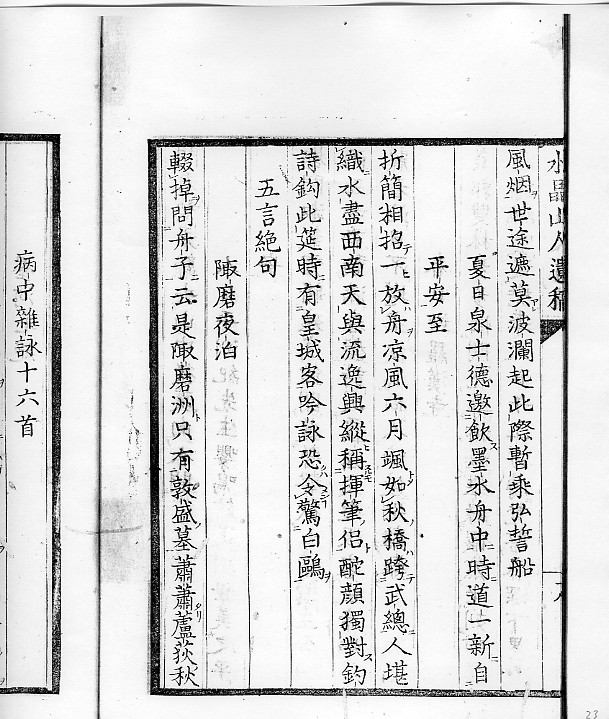 水晶山人遺稿
風烟世途遮莫波瀾起此際暫乘弘誓船
夏日泉士德邀飲墨水舟中時道一新自
平安至
折簡相招一放舟凉風六月颯如秋橋跨武總人堪
織水盡西南天與流逸興縱稱揮筆侶酡顏獨對釣
詩鈎此筵時有皇城客吟詠恐令驚白鷗
五言絕句
陬磨夜泊
輟掉問舟子云是陬磨洲只有敦盛墓蕭蕭蘆荻秋
病中雜詠十六首
23